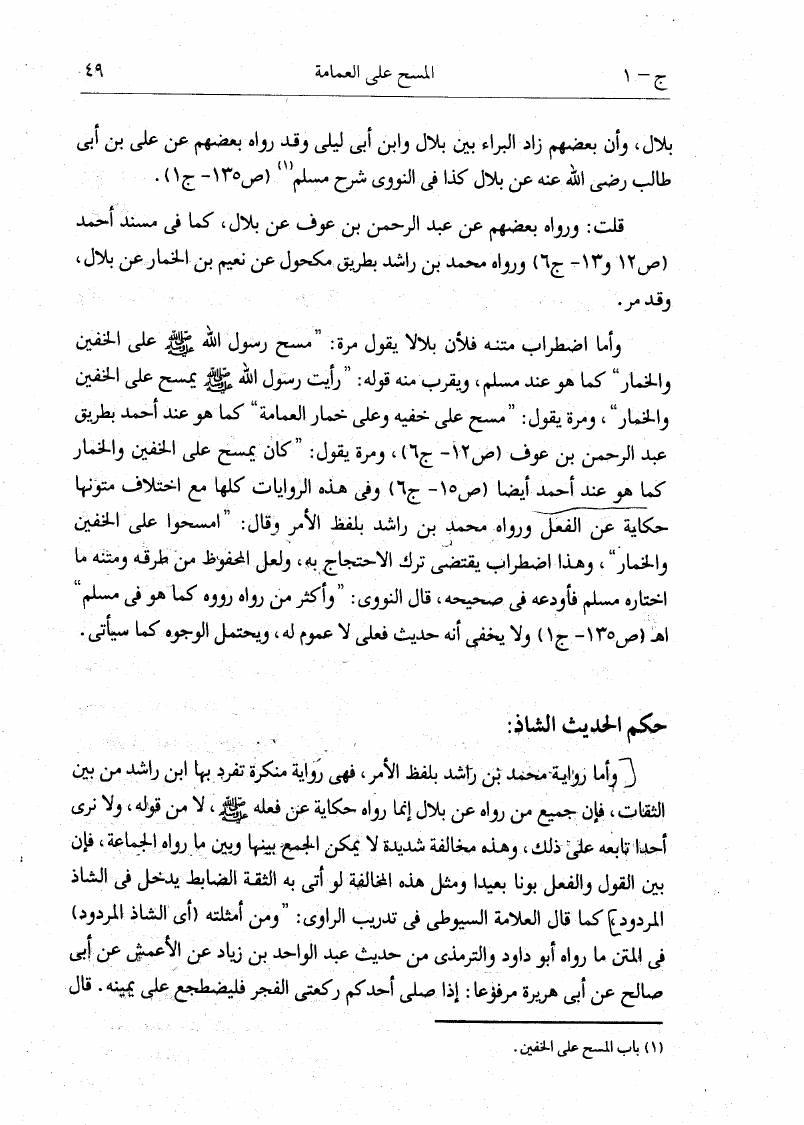 ج – ١ المسح على العمامة ٤٩
بلال، وأن بعضهم زاد البراء بين بلال وابن أبى ليلى وقد رواه بعضهم عن على بن أبى
طالب رضى الله عنه عن بلال كذا فى النووى شرح مسلم(١) (ص١٣٥- ج١).
قلت: ورواه بعضهم عن عبد الرحمن بن عوف عن بلال، كما فى مسند أحمد
(ص١٢ و١٣- ج٦) ورواه محمد بن راشد بطريق مكحول عن نعيم بن الخمار عن بلال،
وقد مر.
وأما اضطراب متنه فلأن بلالا يقول مرة: ”مسح رسول الله ﷺ على الخفين
والخمار“ كما هو عند مسلم، ويقرب منه قوله: ”رأيت رسول الله ﷺ يمسح على الخفين
والخمار“، ومرة يقول: ”مسح على خفيه وعلى خمار العمامة“ كما هو عند أحمد بطريق
عبد الرحمن بن عوف (ص١٢- ج٦)، ومرة يقول: ”كان يمسح على الخفين والخمار
كما هو عند أحمد أيضا (ص١٥- ج٦) وفى هذه الروايات كلها مع اختلاف متونها
حكاية عن الفعل ورواه محمد بن راشد بلفظ الأمر وقال: ”امسحوا على الخفين
والخمار“، وهذا اضطراب يقتضى ترك الاحتجاج به، ولعل المحفوظ من طرقه ومتنه ما
اختاره مسلم فأودعه فى صحيحه، قال النووى: ”وأكثر من رواه رووه كما هو فى مسلم“
اهـ (ص١٣٥- ج١) ولا يخفى أنه حديث فعلى لا عموم له، ويحتمل الوجوه كما سيأتى.
حكم الحديث الشاذ:
[وأما رواية محمد بن راشد بلفظ الأمر، فهى رواية منكرة تفرد بها ابن راشد من بين
الثقات، فإن جميع من رواه عن بلال إنما رواه حكاية عن فعله ﷺ، لا من قوله، ولا نرى
أحدا تابعه على ذلك، وهذه مخالفة شديدة لا يمكن الجمع بينها وبين ما رواه الجماعة، فإن
بين القول والفعل بونا بعيدا ومثل هذه المخالفة لو أتى به الثقة الضابط يدخل فى الشاذ
المردود] كما قال العلامة السيوطى فى تدريب الراوى: ”ومن أمثلته (أى الشاذ المردود)
فى المتن ما رواه أبو داود والترمذى من حديث عبد الواحد بن زياد عن الأعمش عن أبى
صالح عن أبى هريرة مرفوعا: إذا صلى أحدكم ركعتى الفجر فليضطجع على يمينه. قال
(١) باب المسح على الخفين.